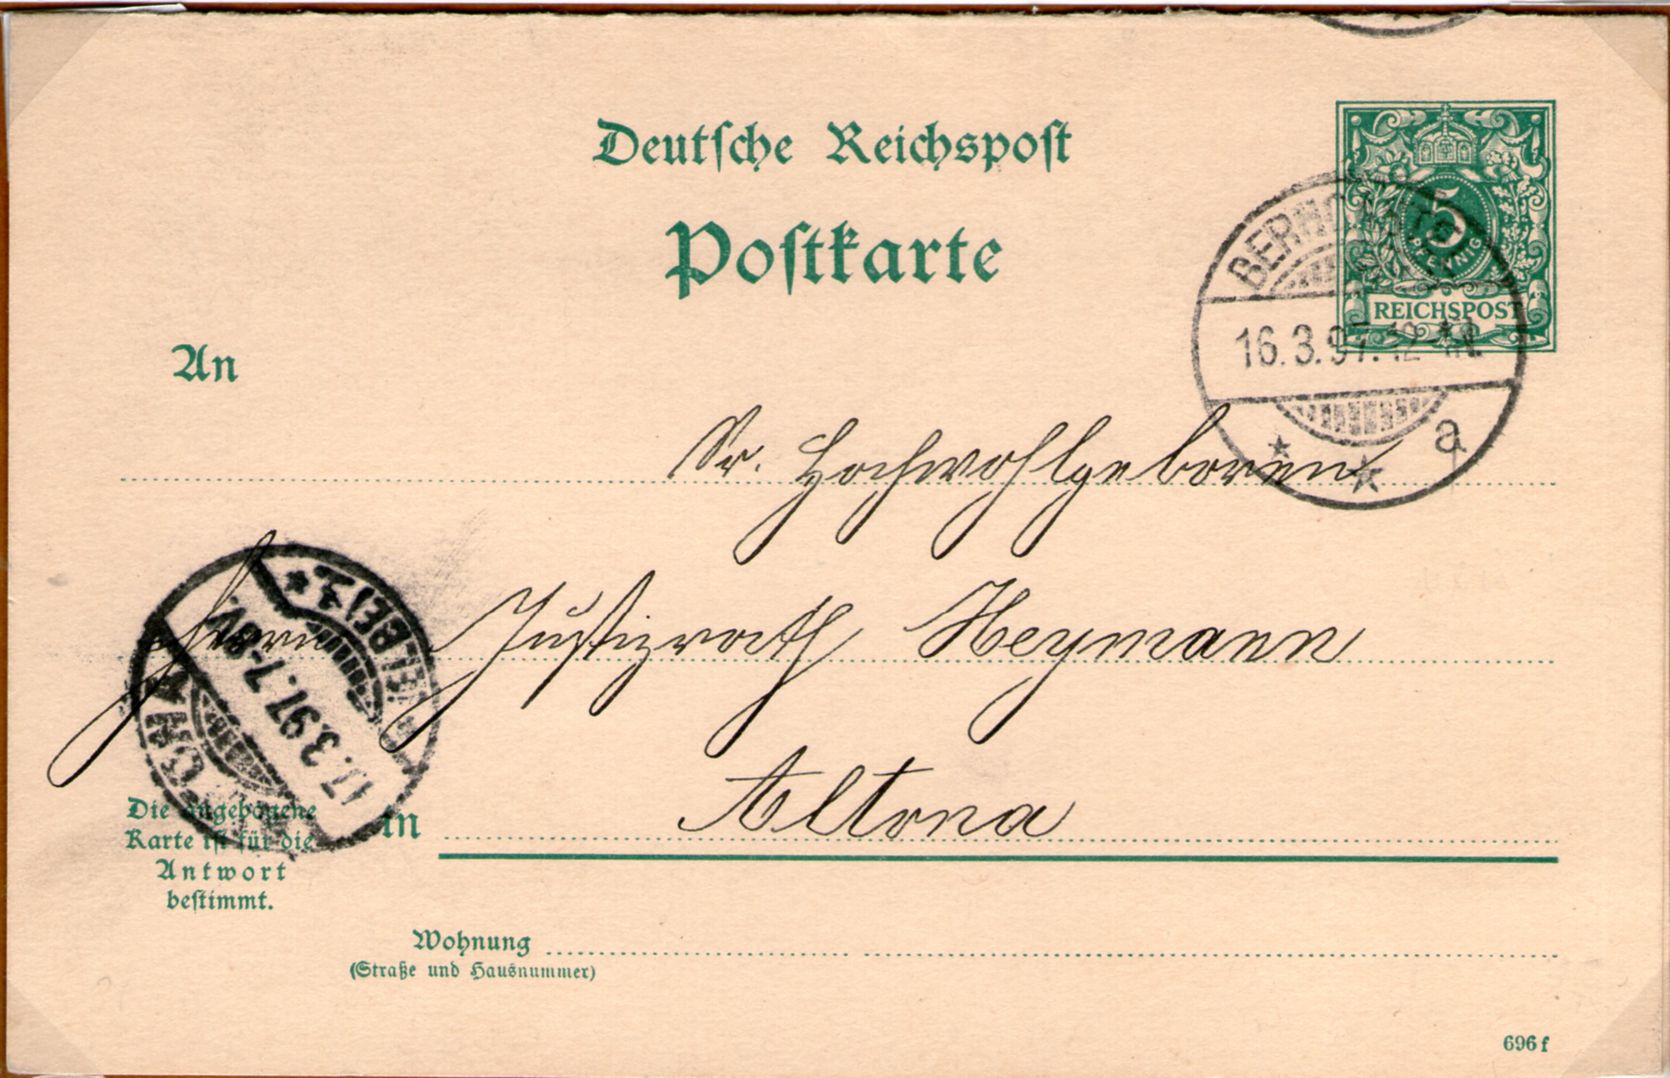 Deutsche Reichspost
Postkarte
5
PFENNIG
REICHSPOST
16.3.97. 12-1N.
a
An
Sr. Hochwohlgeboren
Herrn Justizrath Heymann
17.3.97. 7-8V.
in Altona
Die angebogene
Karte ist für die
Antwort
bestimmt.
Wohnung
(Straße und Hausnummer)
696 f